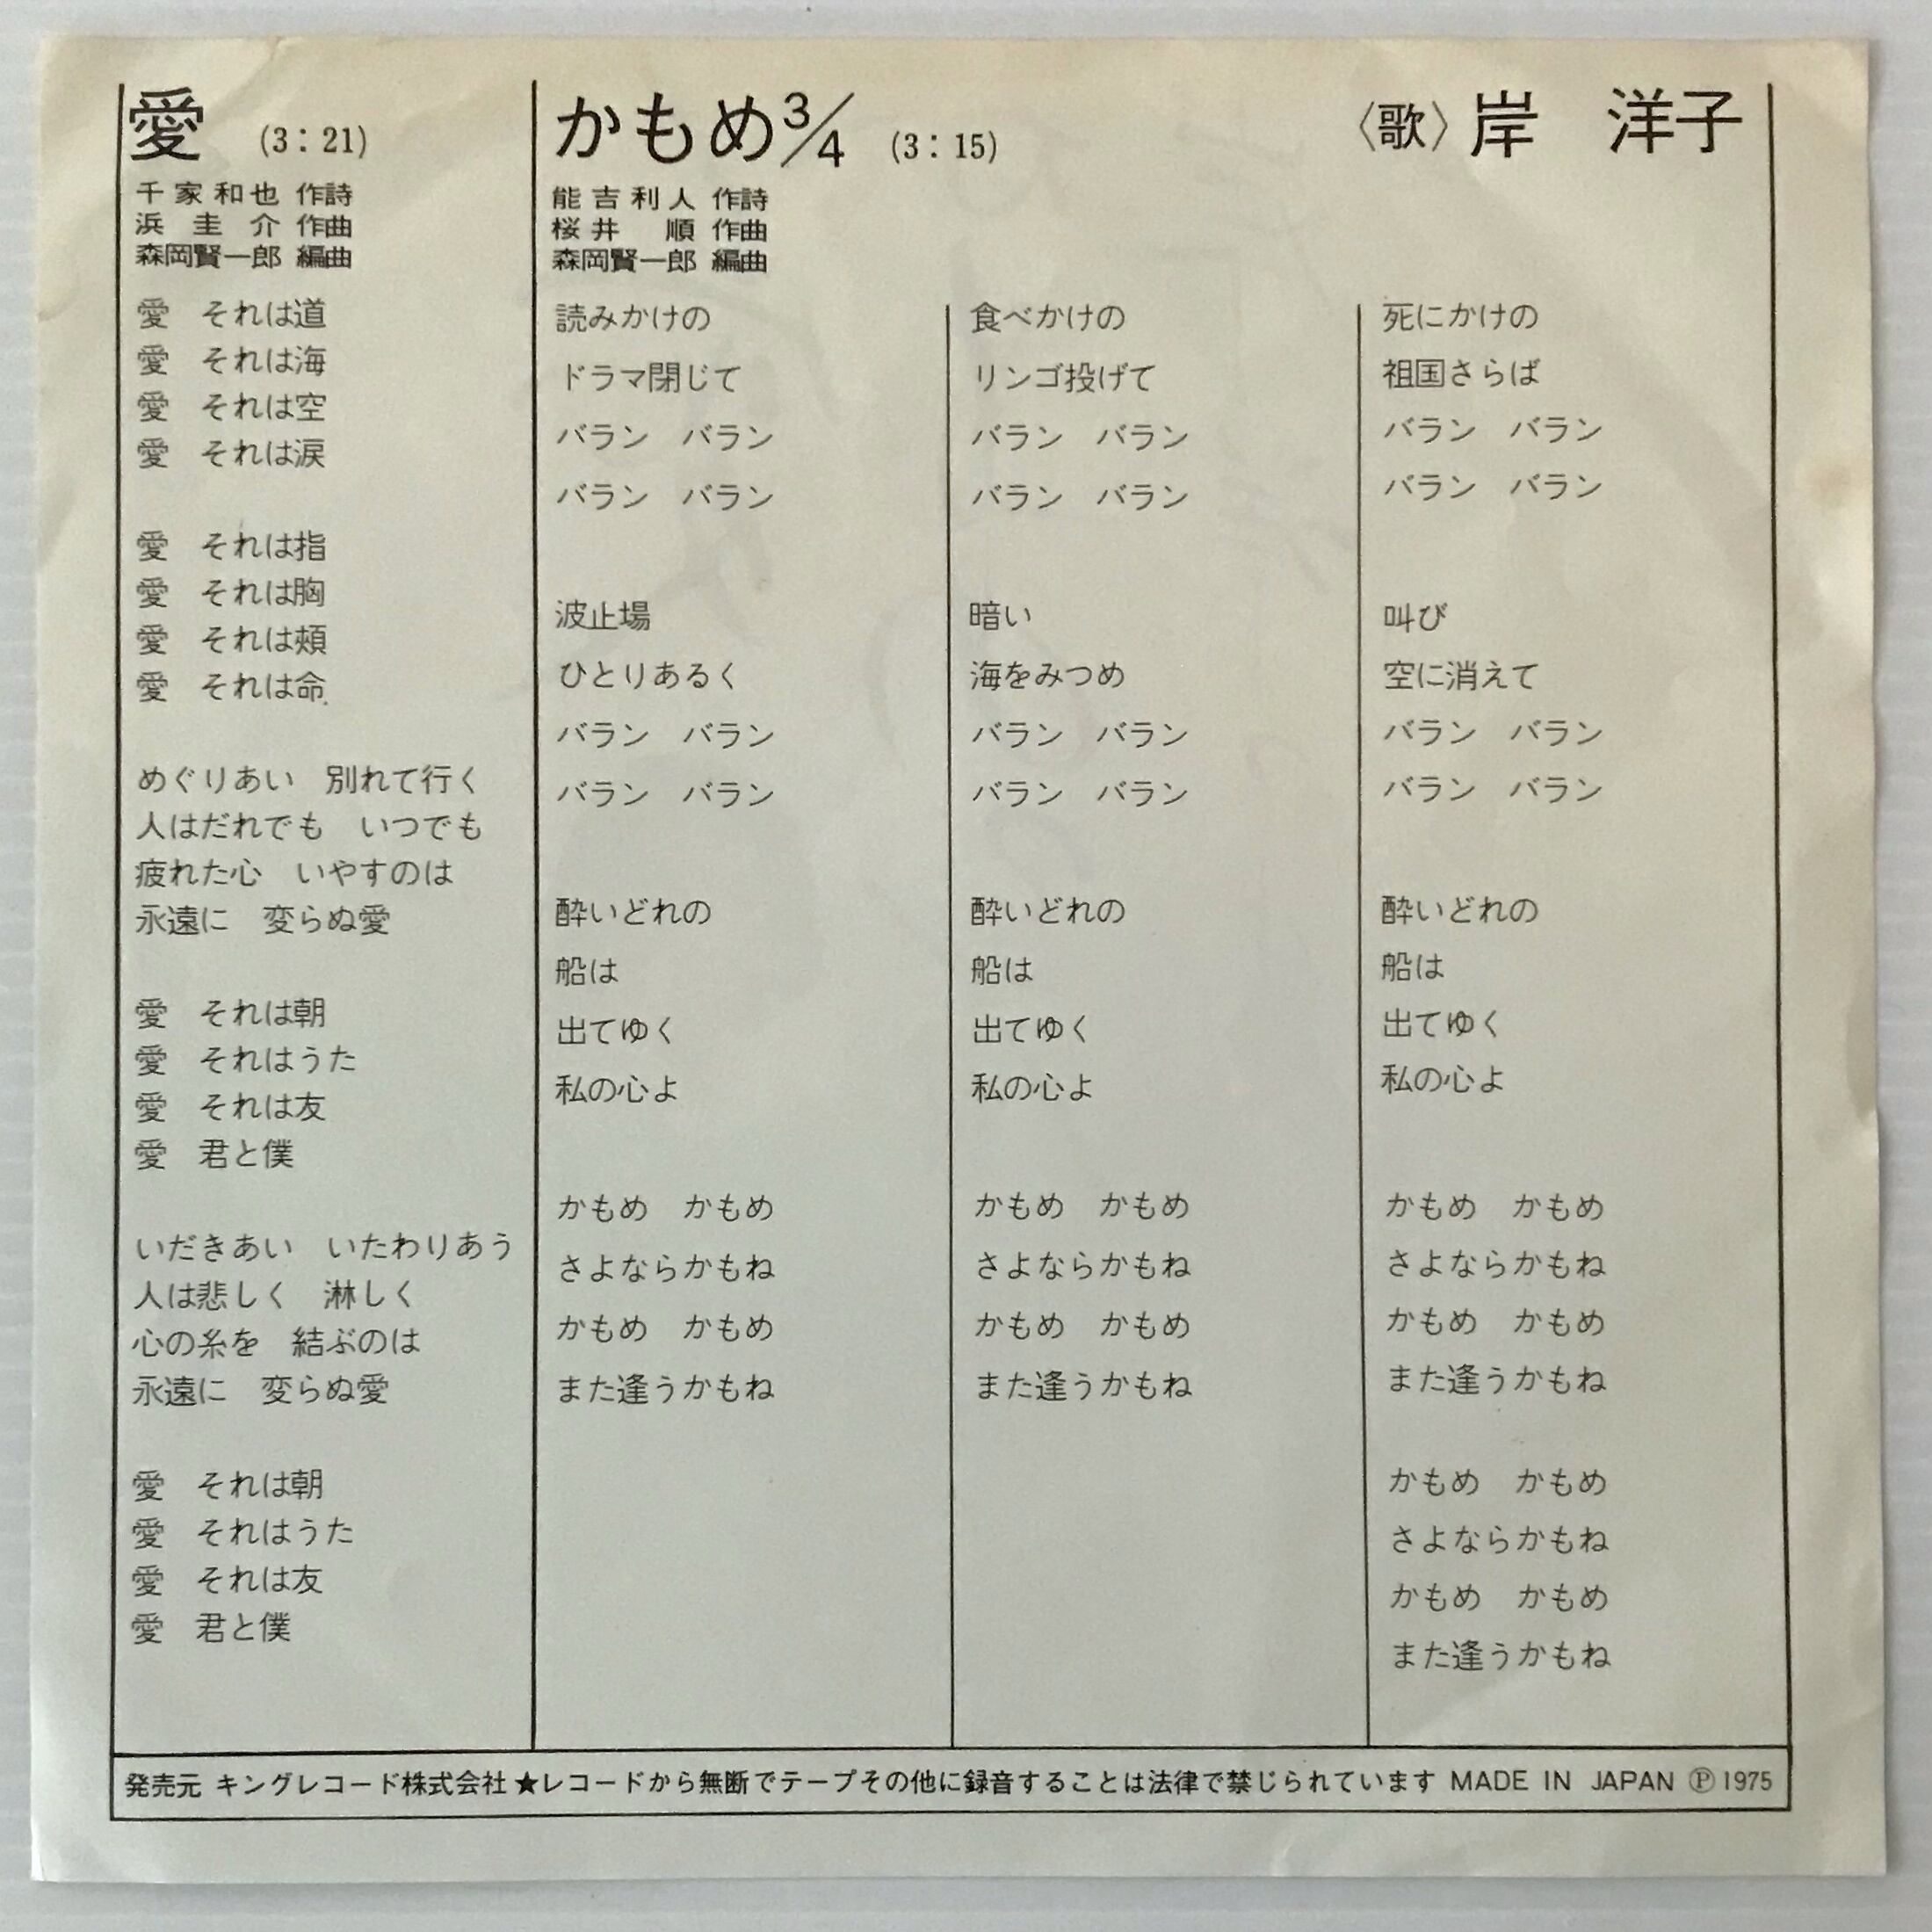 愛 (3:21)
千家和也 作詩
浜 圭 介 作曲
森岡賢一郎 編曲
愛 それは道
愛 それは海
愛 それは空
愛 それは涙
愛 それは指
愛 それは胸
愛 それは頬
愛 それは命
めぐりあい 別れて行く
人はだれでも いつでも
疲れた心 いやすのは
永遠に 変らぬ愛
愛 それは朝
愛 それはうた
愛 それは友
愛 君と僕
いだきあい いたわりあう
人は悲しく 淋しく
心の糸を 結ぶのは
永遠に 変らぬ愛
愛 それは朝
愛 それはうた
愛 それは友
愛 君と僕
かもめ3/4 (3:15)
〈歌〉岸 洋子
能吉利人 作詩
桜井 順 作曲
森岡賢一郎 編曲
読みかけの
ドラマ閉じて
バラン バラン
バラン バラン
波止場
ひとりあるく
バラン バラン
バラン バラン
酔いどれの
船は
出てゆく
私の心よ
かもめ かもめ
さよならかもね
かもめ かもめ
また逢うかもね
食べかけの
リンゴ投げて
バラン バラン
バラン バラン
暗い
海をみつめ
バラン バラン
バラン バラン
酔いどれの
船は
出てゆく
私の心よ
かもめ かもめ
さよならかもね
かもめ かもめ
また逢うかもね
死にかけの
祖国さらば
バラン バラン
バラン バラン
叫び
空に消えて
バラン バラン
バラン バラン
酔いどれの
船は
出てゆく
私の心よ
かもめ かもめ
さよならかもね
かもめ かもめ
また逢うかもね
かもめ かもめ
さよならかもね
かもめ かもめ
また逢うかもね
発売元 キングレコード株式会社★レコードから無断でテープその他に録音することは法律で禁じられています MADE IN JAPAN Ⓟ1975